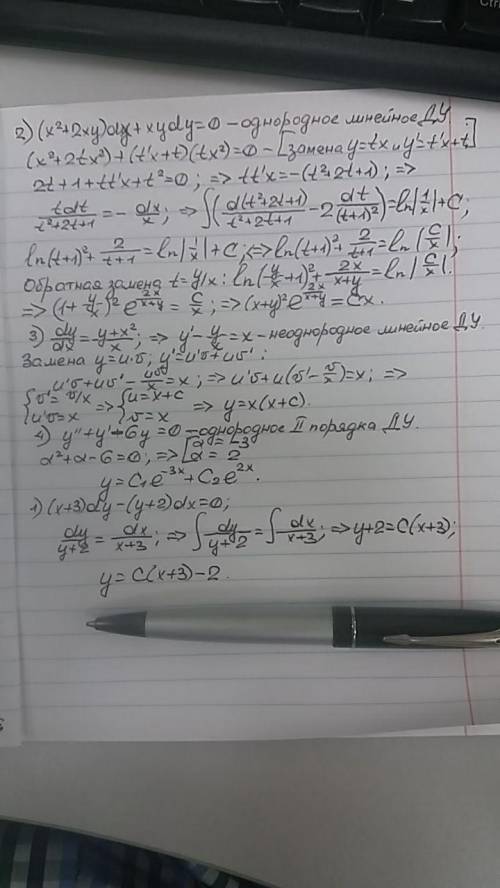 2) (x²+2xy)dx+xydy=0 – однородное линейное ДУ
(x²+2tx²)+(t'x+t)(tx²)=0 – [замена y=tx и y'=t'x+t]
2t+1+tt'x+t²=0; => tt'x=-(t²+2t+1); =>
tdt/(t²+2t+1) = -dx/x; => ∫(d(t²+2t+1)/(t²+2t+1) - 2dt/(t+1)²) = ln|1/x|+C;
ln(t+1)²+2/(t+1)=ln|1/x|+C; <=> ln(t+1)²+2/(t+1)=ln|C/x|;
Обратная замена t=y/x: ln(y/x+1)²+2x/(x+y)=ln|C/x|.
=> (1+y/x)²e^(2x/(x+y))=C/x; => (x+y)²e^(2x/(x+y))=Cx.
3) dy/dx=(y+x²)/x; => y'-y/x=x – неоднородное линейное ДУ.
Замена y=u·v; y'=u'v+uv':
u'v+uv'-uv/x=x; => u'v+u(v'-v/x)=x; =>
{v'=v/x u'v=x => {u=x+c v=x => y=x(x+c).
4) y''+y'-6y=0 – однородное II порядка ДУ.
α²+α-6=0; => [α=-3 α=2
y=C₁e^(-3x)+C₂e^(2x).
1) (x+3)dy-(y+2)dx=0;
dy/(y+2)=dx/(x+3); => ∫dy/(y+2)=∫dx/(x+3); => y+2=C(x+3);
y=C(x+3)-2.
Ctrl